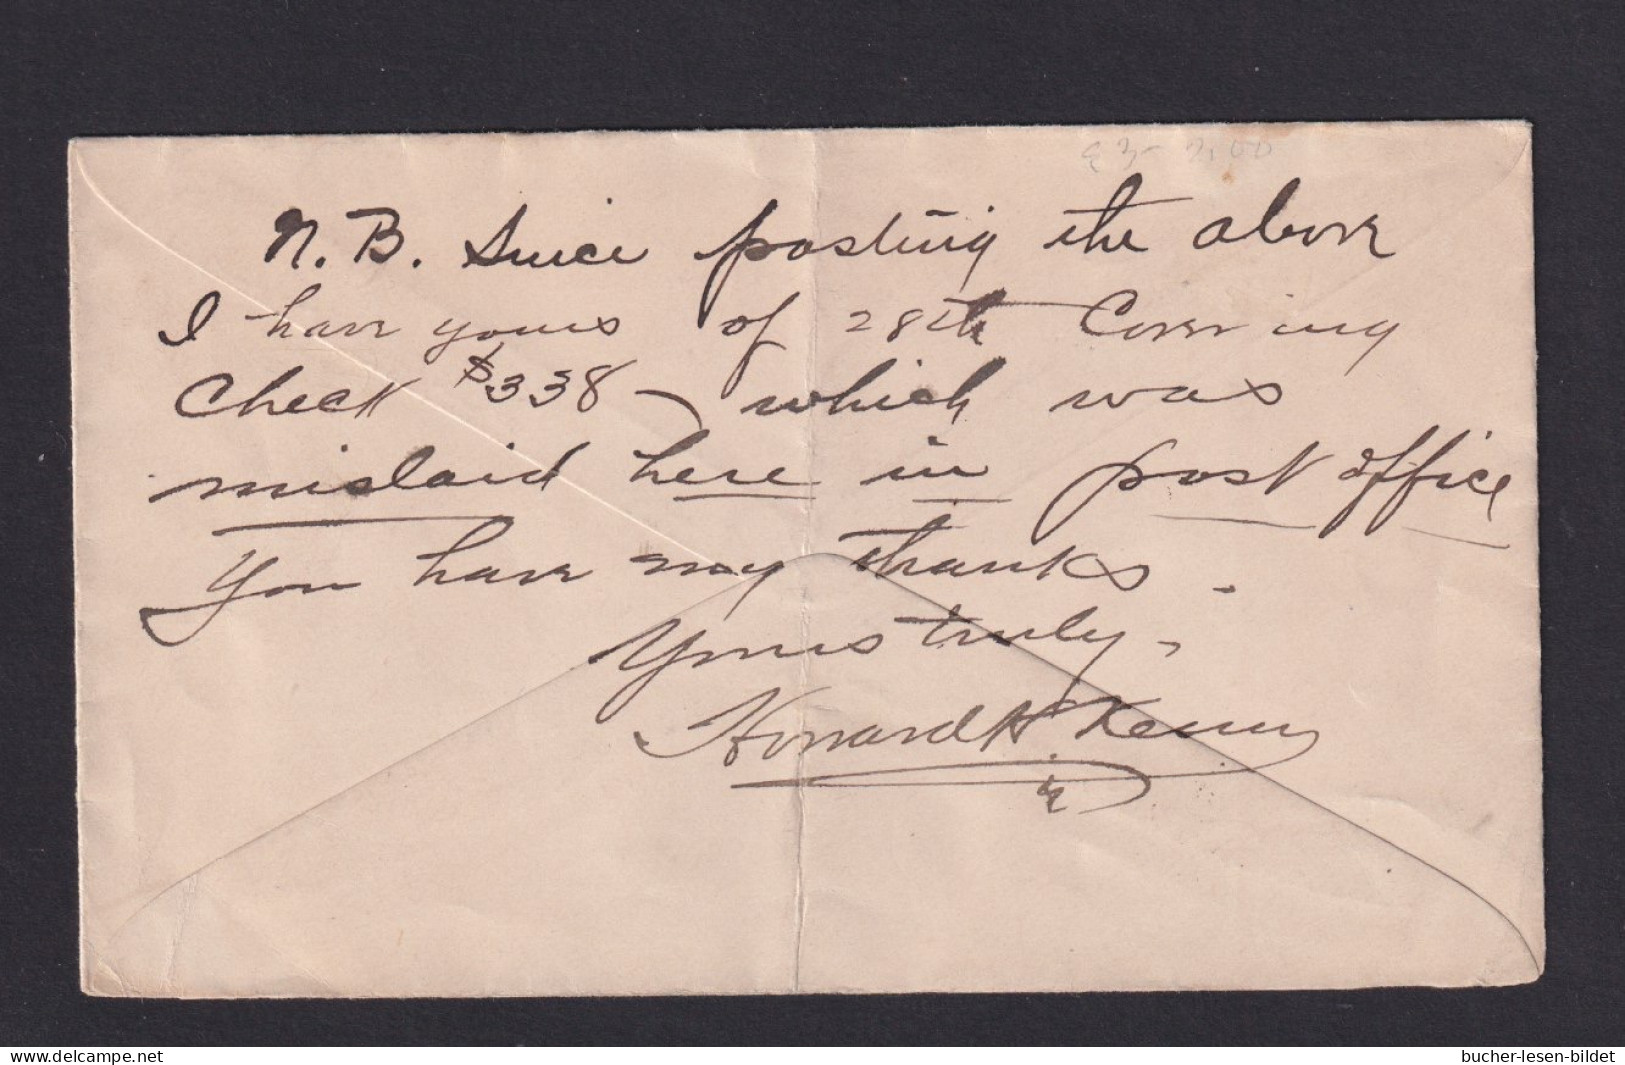 N.B. Since posting the above
I have yours of 28th Covering
Check $338 – which was
mislaid here in post office
You have my thanks.
Yours truly,
Howard H Kenny
delcampe.net
bucher-lesen-bildet